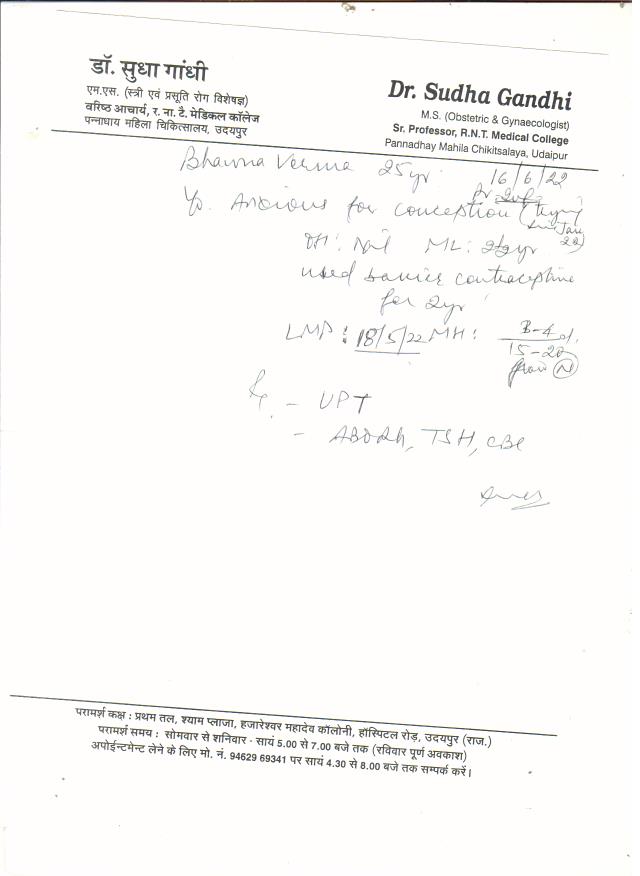 डॉ. सुधा गांधी
एम.एस. (स्त्री एवं प्रसूति रोग विशेषज्ञ)
वरिष्ठ आचार्य, र. ना. टै. मेडिकल कॉलेज
पन्नाधाय महिला चिकित्सालय, उदयपुर
Dr. Sudha Gandhi
M.S. (Obstetric & Gynaecologist)
Sr. Professor, R.N.T. Medical College
Pannadhay Mahila Chikitsalaya, Udaipur
Bhavna Verma 25yr.
16/6/22
Anxious for conception (trying
Jan
22)
OH: Nil ML: 2½yr
used barrier contraceptive
for 2yr
LMP: 18/5/22 MH: 3-4 d.
15-20
flow N
- UPT
- ABORh, TSH, CBC
परामर्श कक्ष : प्रथम तल, श्याम प्लाजा, हजारेश्वर महादेव कॉलोनी, हॉस्पिटल रोड़, उदयपुर (राज.)
परामर्श समय : सोमवार से शनिवार - सायं 5.00 से 7.00 बजे तक (रविवार पूर्ण अवकाश)
अपोईन्टमेन्ट लेने के लिए मो. नं. 94629 69341 पर सायं 4.30 से 8.00 बजे तक सम्पर्क करें।